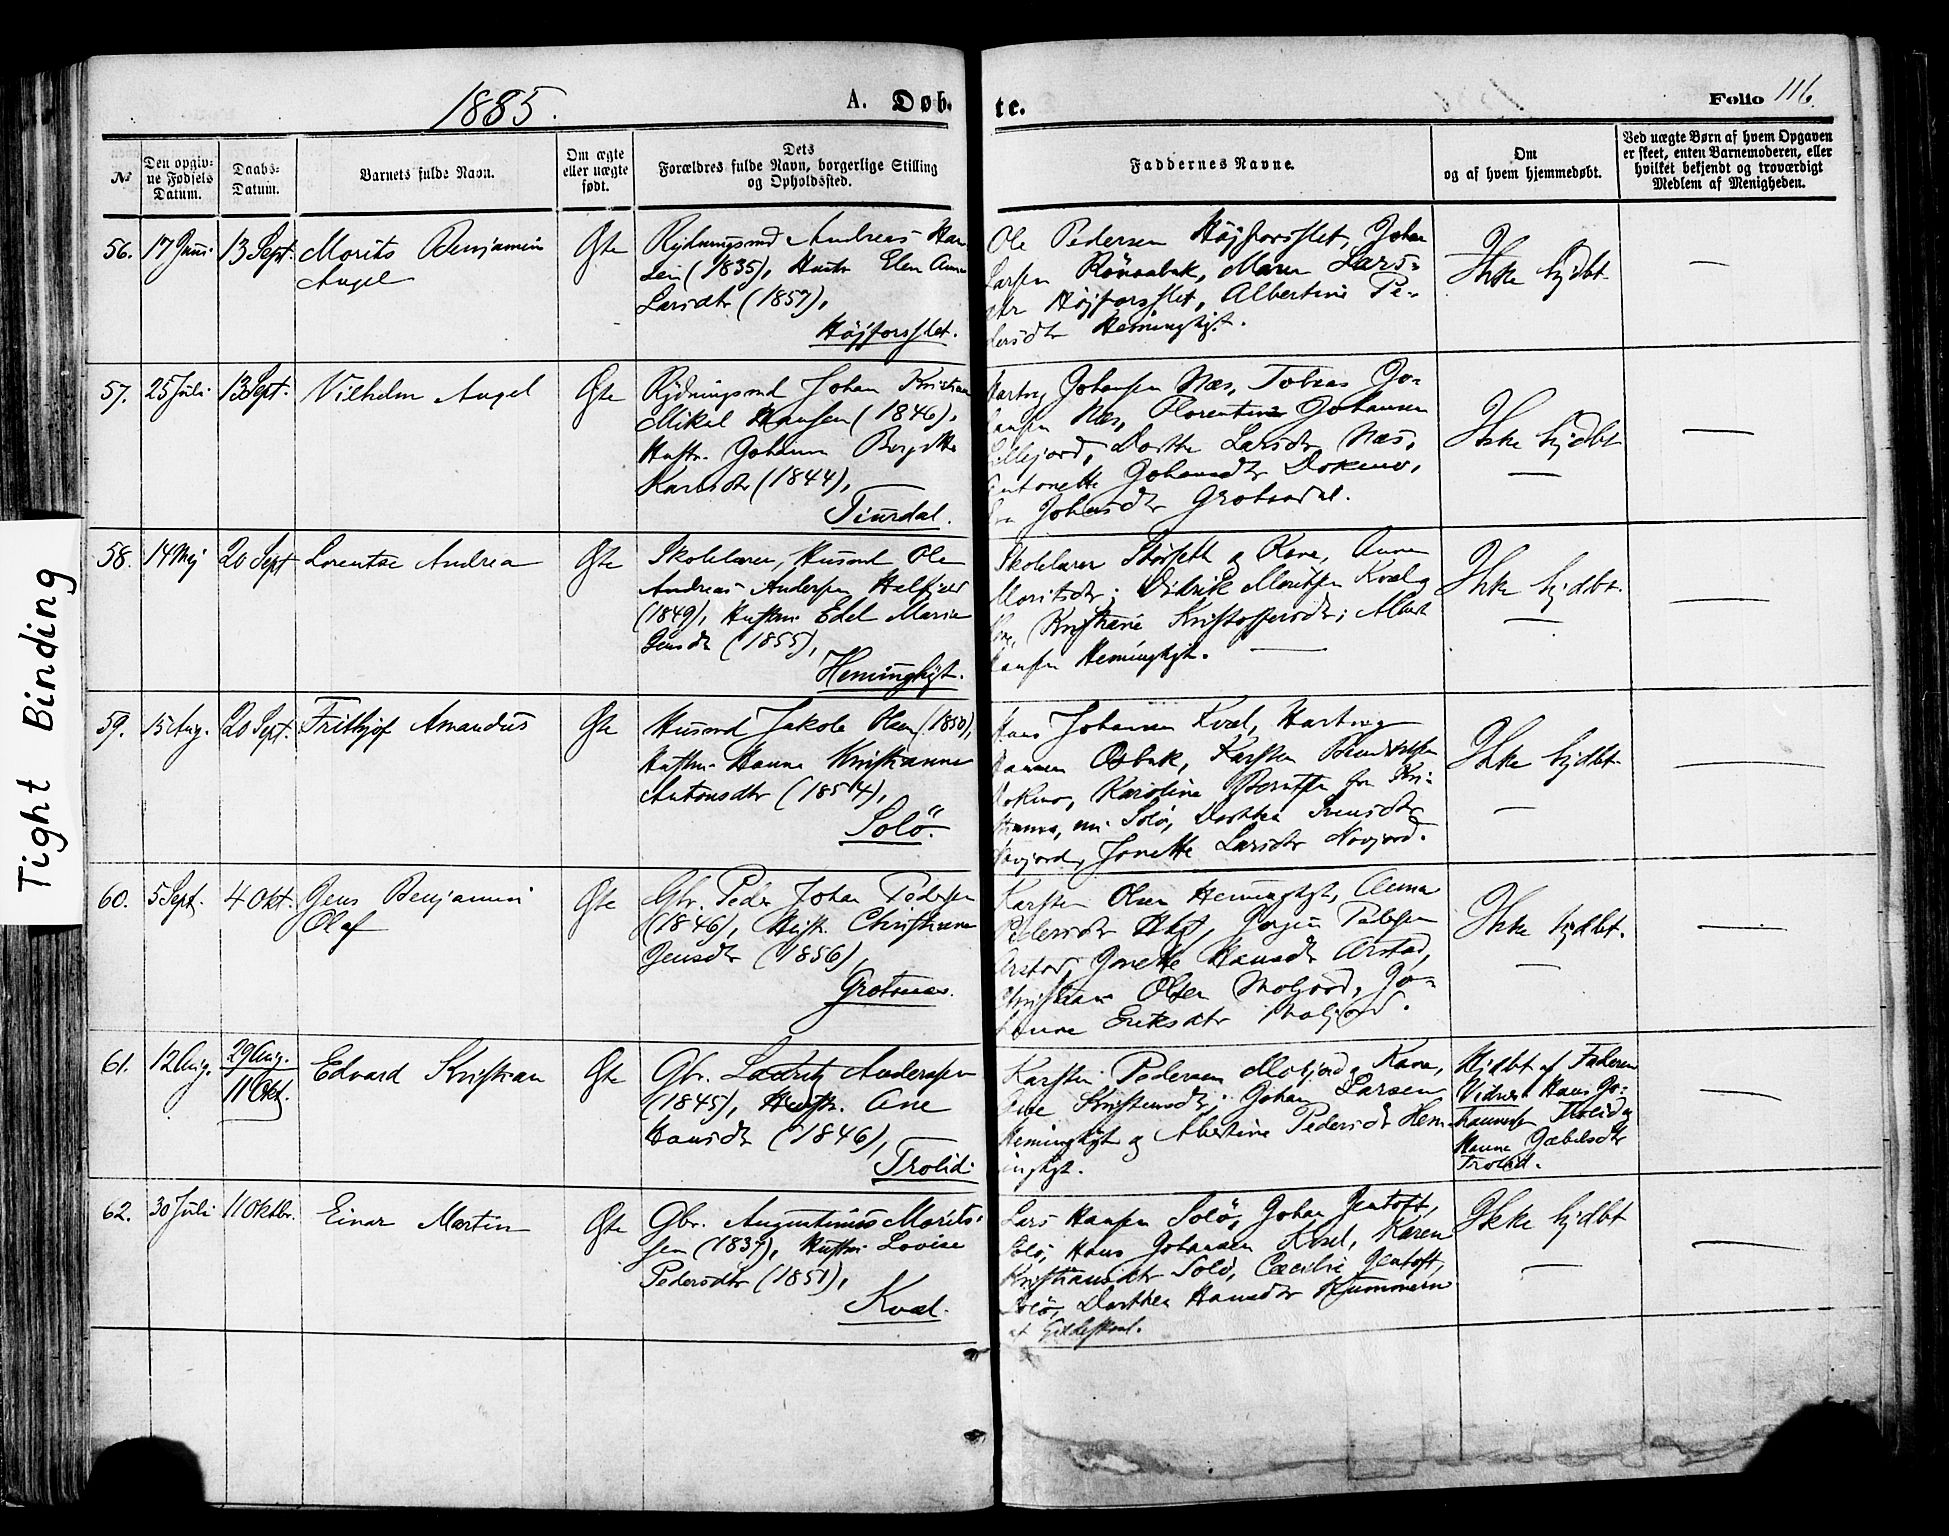 1885.
A. Døb-
te.
Folio 116.
Tight Binding
№
Den opgiv-
ne Fødsels
Datum.
Daabs-
Datum.
Barnets fulde Navn.
Om ægte
eller uægte
født.
Dets
Forældres fulde Navn, borgerlige Stilling
og Opholdssted.
Faddernes Navne.
Om
og af hvem hjemmedøbt.
Ved uægte Børn af hvem Opgaven
er skeet, enten Barnemoderen, eller
hvilket bekjendt og troværdigt
Medlem af Menigheden.
56. 17 Juni 13 Sept. Morits Benjamin
Angel
Ægte
Rydningsmd Andreas Han
sen (1835), Hustr Elen Anna
Larsdtr (1857),
Højforsslet.
Ole Pedersen Højforsslet, Johan
Larsen Rönaabak, Maren Lars-
dtr Højforsslet, Albertine Pe-
dersdtr Heminghgt.
Ikke hjdbt.
—
57. 25 Juli 13 Sept. Vilhelm Angel
Ægte
Rydningsmd Johan Kristian
Mikal Hansen (1846),
Hustr. Johanna Bergitte
Karlsdtr (1844),
Tinrdal.
Hartvig Johansen Næs, Tobias Jo-
hansen Næs, Florentine Johansen
Lillejord, Dorthe Larsdtr Næs,
Antonette Johansdtr Dokmo,
Johansdtr Grotaadal.
Ikke hjdbt
—
—
58. 14 Mej 20 Sept Lorentse Andrea
Ægte
Skolelærer, Husmd Ole
Andreas Andersen
(1849), Hustru Edel Maria
Jensdtr (1855),
Hemingkgt.
Skolelærer Störseth og Kone, Anna
Moritsdtr; Didrik Moritsen Kval og
Kone, Kristiane Kristoffersdtr; Albert
Hansen Hemingkgt. —
Ikke hjdbt.
—
—
59. 15 Aug. 20 Sept. Frithjof Amandus
Ægte
Husmd Jakob Olsen (1850),
Hustru Hanna Kristianna
Antonsdtr (1854),
Solö.
Hans Johansen Kval, Hartvig
Hansen Osbak, Karsten Benediktsen
Dokmo, Karoline Berntsen fra Kri-
stiania, nu Solö, Dorthea Svensdtr
Novjord, Jonette Larsdtr Novjord.
Ikke hjdbt.
—
—
60. 5 Sept. 4 Okt. Jens Benjamin
Olaf
Ægte
Gbr. Peder Johan Pedersen
(1846), Hustr. Christianne
Jensdtr (1856),
Grotnæs.
Karsten Olsen Hemingkgt, Anna
Pedersdtr Hkgt, Jörgen Pedersen
Arstad, Jonette Hansdtr Arstad,
Kristian Olsen Moljord, Jo-
hanna Eriksdtr Moljord.
Ikke hjdbt.
—
—
61. 12 Aug. 29 Aug.
11 Okt.
Edvard Kristian
Ægte
Gbr. Lauritz Andersen
(1845), Hustr. Ane
Hansdtr (1846),
Trolid.
Karsten Pedersen Moljord og Kone,
Ane Kristensdtr; Johan Larsen
Hemingkgt og Albertine Pedersdtr Hem-
ingkgt.
Hjdbt af Faderen
Vidner: Hans Jo-
hannesen Trolid og
Hanna Jakobsdtr
Trolid.
—
62. 30 Juli 11 Oktbr. Einar Martin
Ægte
Gbr. Augustinus Morits-
sen (1837), Hustru Lovise
Pedersdtr (1851),
Kval.
Lars Hansen Solö, Johan Jentoft,
Solö, Hans Johansen Kval, Karen
Kristiansdtr Solö, Cæcilie Jentoft,
Solö, Dorthea Hansdtr
af Gildeskaal.
Ikke hjdbt
—
—